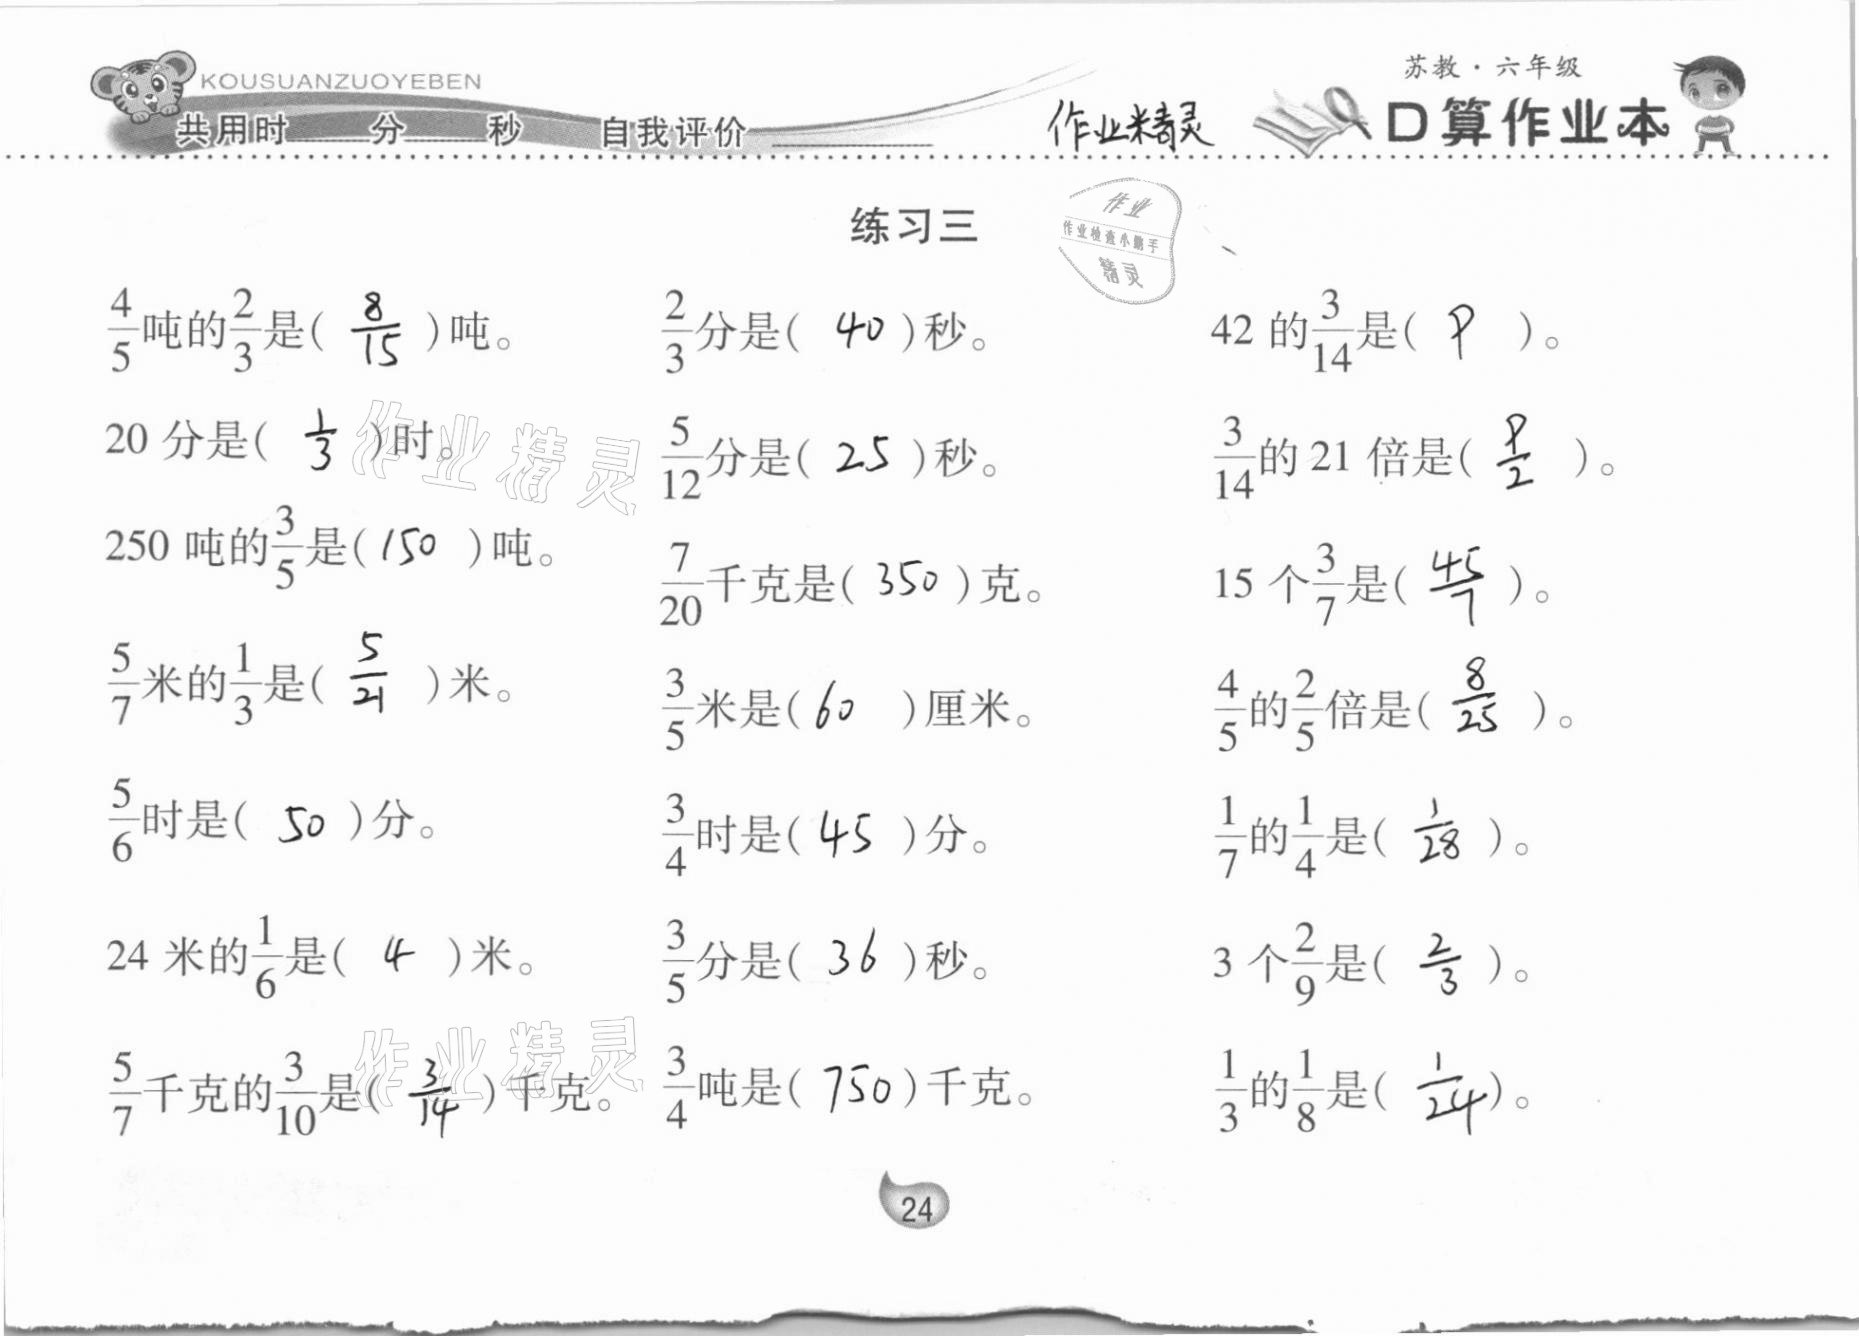 KOUSUANZUOYEBEN
共用时____分____秒 自我评价________
作业精灵
苏教·六年级
口算作业本
练习三
作业
作业检查小能手
精灵
4/5吨的2/3是( 8/15 )吨。 2/3分是( 40 )秒。 42 的3/14是( 9 )。
20 分是( 1/3 )时。 5/12分是( 25 )秒。 3/14的 21 倍是( 9/2 )。
250 吨的3/5是( 150 )吨。 7/20千克是( 350 )克。 15 个3/7是( 45/7 )。
5/7米的1/3是( 5/21 )米。 3/5米是( 60 )厘米。 4/5的2/5倍是( 8/25 )。
5/6时是( 50 )分。 3/4时是( 45 )分。 1/7的1/4是( 1/28 )。
24 米的1/6是( 4 )米。 3/5分是( 36 )秒。 3 个2/9是( 2/3 )。
5/7千克的3/10是( 3/14 )千克。 3/4吨是( 750 )千克。 1/3的1/8是( 1/24 )。
作业精灵
作业精灵
24